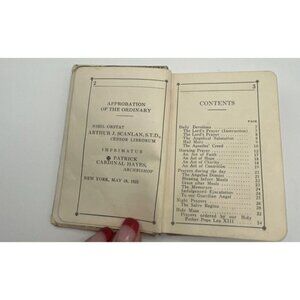 2
APPROBATION
OF THE ORDINARY
NIHIL OBSTAT
ARTHUR J. SCANLAN, S.T.D.,
CENSOR LIBRORUM
IMPRIMATUR
PATRICK
CARDINAL HAYES,
ARCHBISHOP
NEW YORK, MAY
3
CONTENTS
PAGE
Daily Devotions
The Lord's Prayer (Instruction)
The Lord's Prayer
The Angelical Salutation
Hail Mary
The Apostles' Creed
Morning Prayer
An Act of Faith
An Act of Hope
An Act of Charity
An Act of Contrition
Prayers during the day
The Angelus Domini
Blessing before Meals
Grace after Meals
The Memorare
Indulgenced Ejaculations
To our Guardian Angel
Night Prayers
The Salve Regina
Holy Mass
Prayers ordered by our Holy
Father Pope Leo XIII